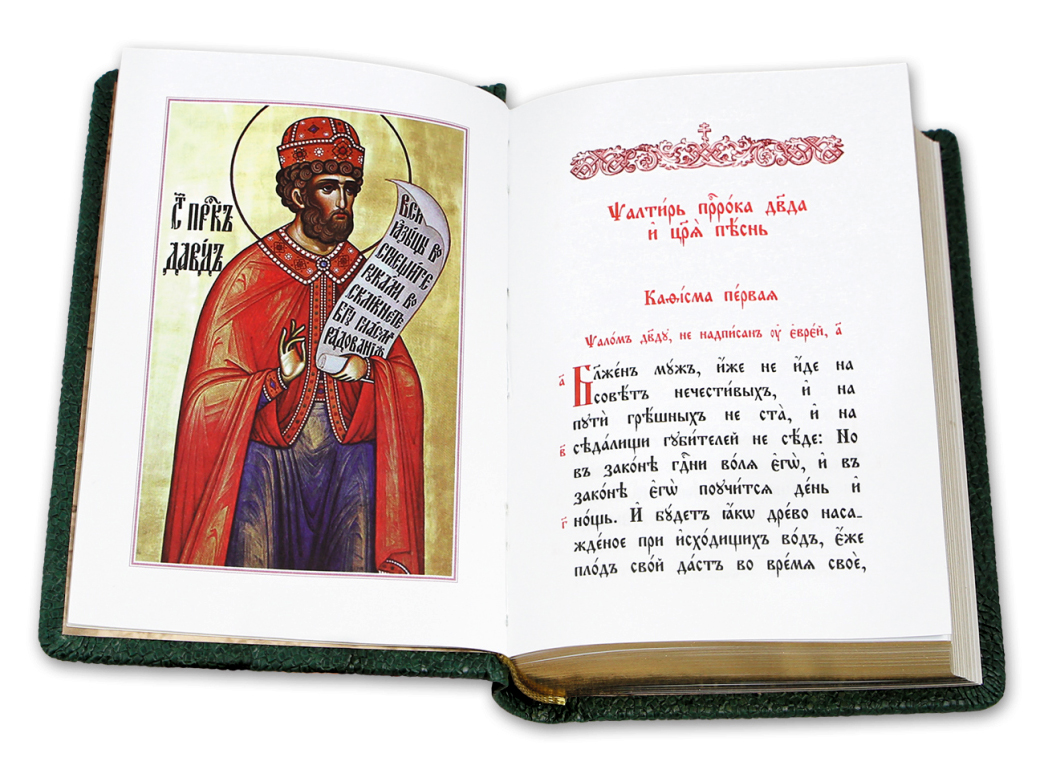 С҃т прⷪ҇ркъ
давидъ
всѝ
ꙗзыцы во
сплещи́те
рука́ми, во
скликнете
бг҃у гласом
радованїѧ
Ѱалти́рь прⷪ҇ро́ка дв҃да
и҆ цр҃ѧ̀ пѣ́снь
Каѳі́сма пе́рвая
Ѱало́мъ дв҃ду, не надписанъ ᲂу҆ є҆вре́й, а҃
а҃ Бл҃же́нъ мꙋ́жъ, и҆́же не и҆́де на
совѣ́тъ нечести́выхъ, и҆ на
пꙋти́ грѣ́шныхъ не ста̀, и҆ на
в҃ сѣда́лищи гꙋби́телей не сѣ́де: Но
въ зако́нѣ гдⷭ҇ни во́лѧ є҆гѡ̀, и҆ въ
зако́нѣ є҆гѡ̀ поꙋчи́тсѧ де́нь и҆
г҃ но́щь. И҆ бꙋ́детъ ꙗ҆́кѡ дре́во наса-
жде́ное при и҆схо́дищихъ во́дъ, є҆́же
пло́дъ сво́й да́стъ во вре́мѧ своѐ,